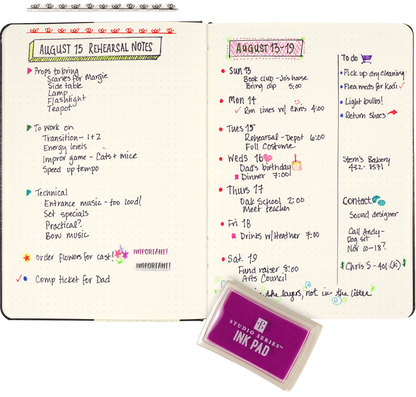 AUGUST 15 REHEARSAL NOTES
Props to bring
Scarves for Margie
Side table
Lamp
Flashlight
Teapot
To work on
Transition - 1+2
Energy levels
Improv game - Cats + mice
Speed up tempo
Technical
Entrance music - too loud!
Set specials
Practical?
Bow music
Order flowers for cast!
IMPORTANT!
IMPORTANT!
Comp ticket for Dad
AUGUST 13-19
Sun 13
Book club - Jo's house
Bring dip 5:00
Mon 14
Run lines w/ Chris 4:00
Tues 15
Rehearsal - Depot 6:00
Full Costume
Weds 16
Dad's birthday
Dinner 7:00
Thurs 17
Oak School 2:00
Meet teacher
Fri 18
Drinks w/Heather 7:00
Sat. 19
Fund raiser 8:00
Arts Council
the layers, not in the litter
To do
Pick up dry cleaning
Flea meds for Kodi
Light bulbs!
Return shoes
Bakery
432-8571
Contact
Sound designer
Call Andy-
Dog sit
Nov 10-18?
STUDIO SERIES
INK PAD